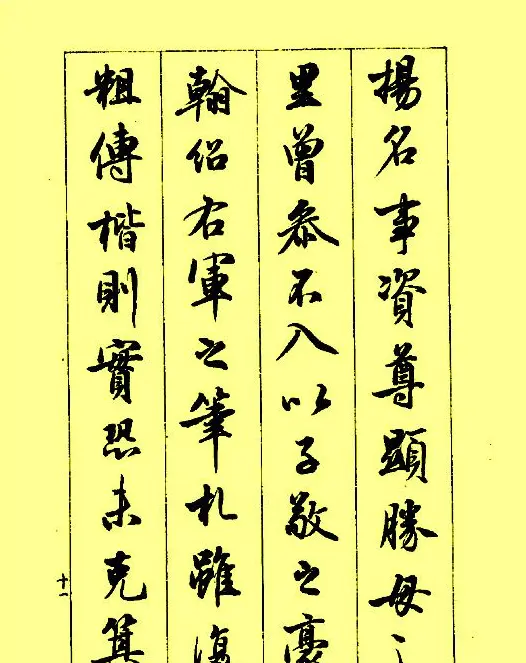 揚名事資尊顯勝母之
里曾參不入以子敬之豪
翰紹右軍之筆札雖復
粗傳楷則實恐未克箕
十一